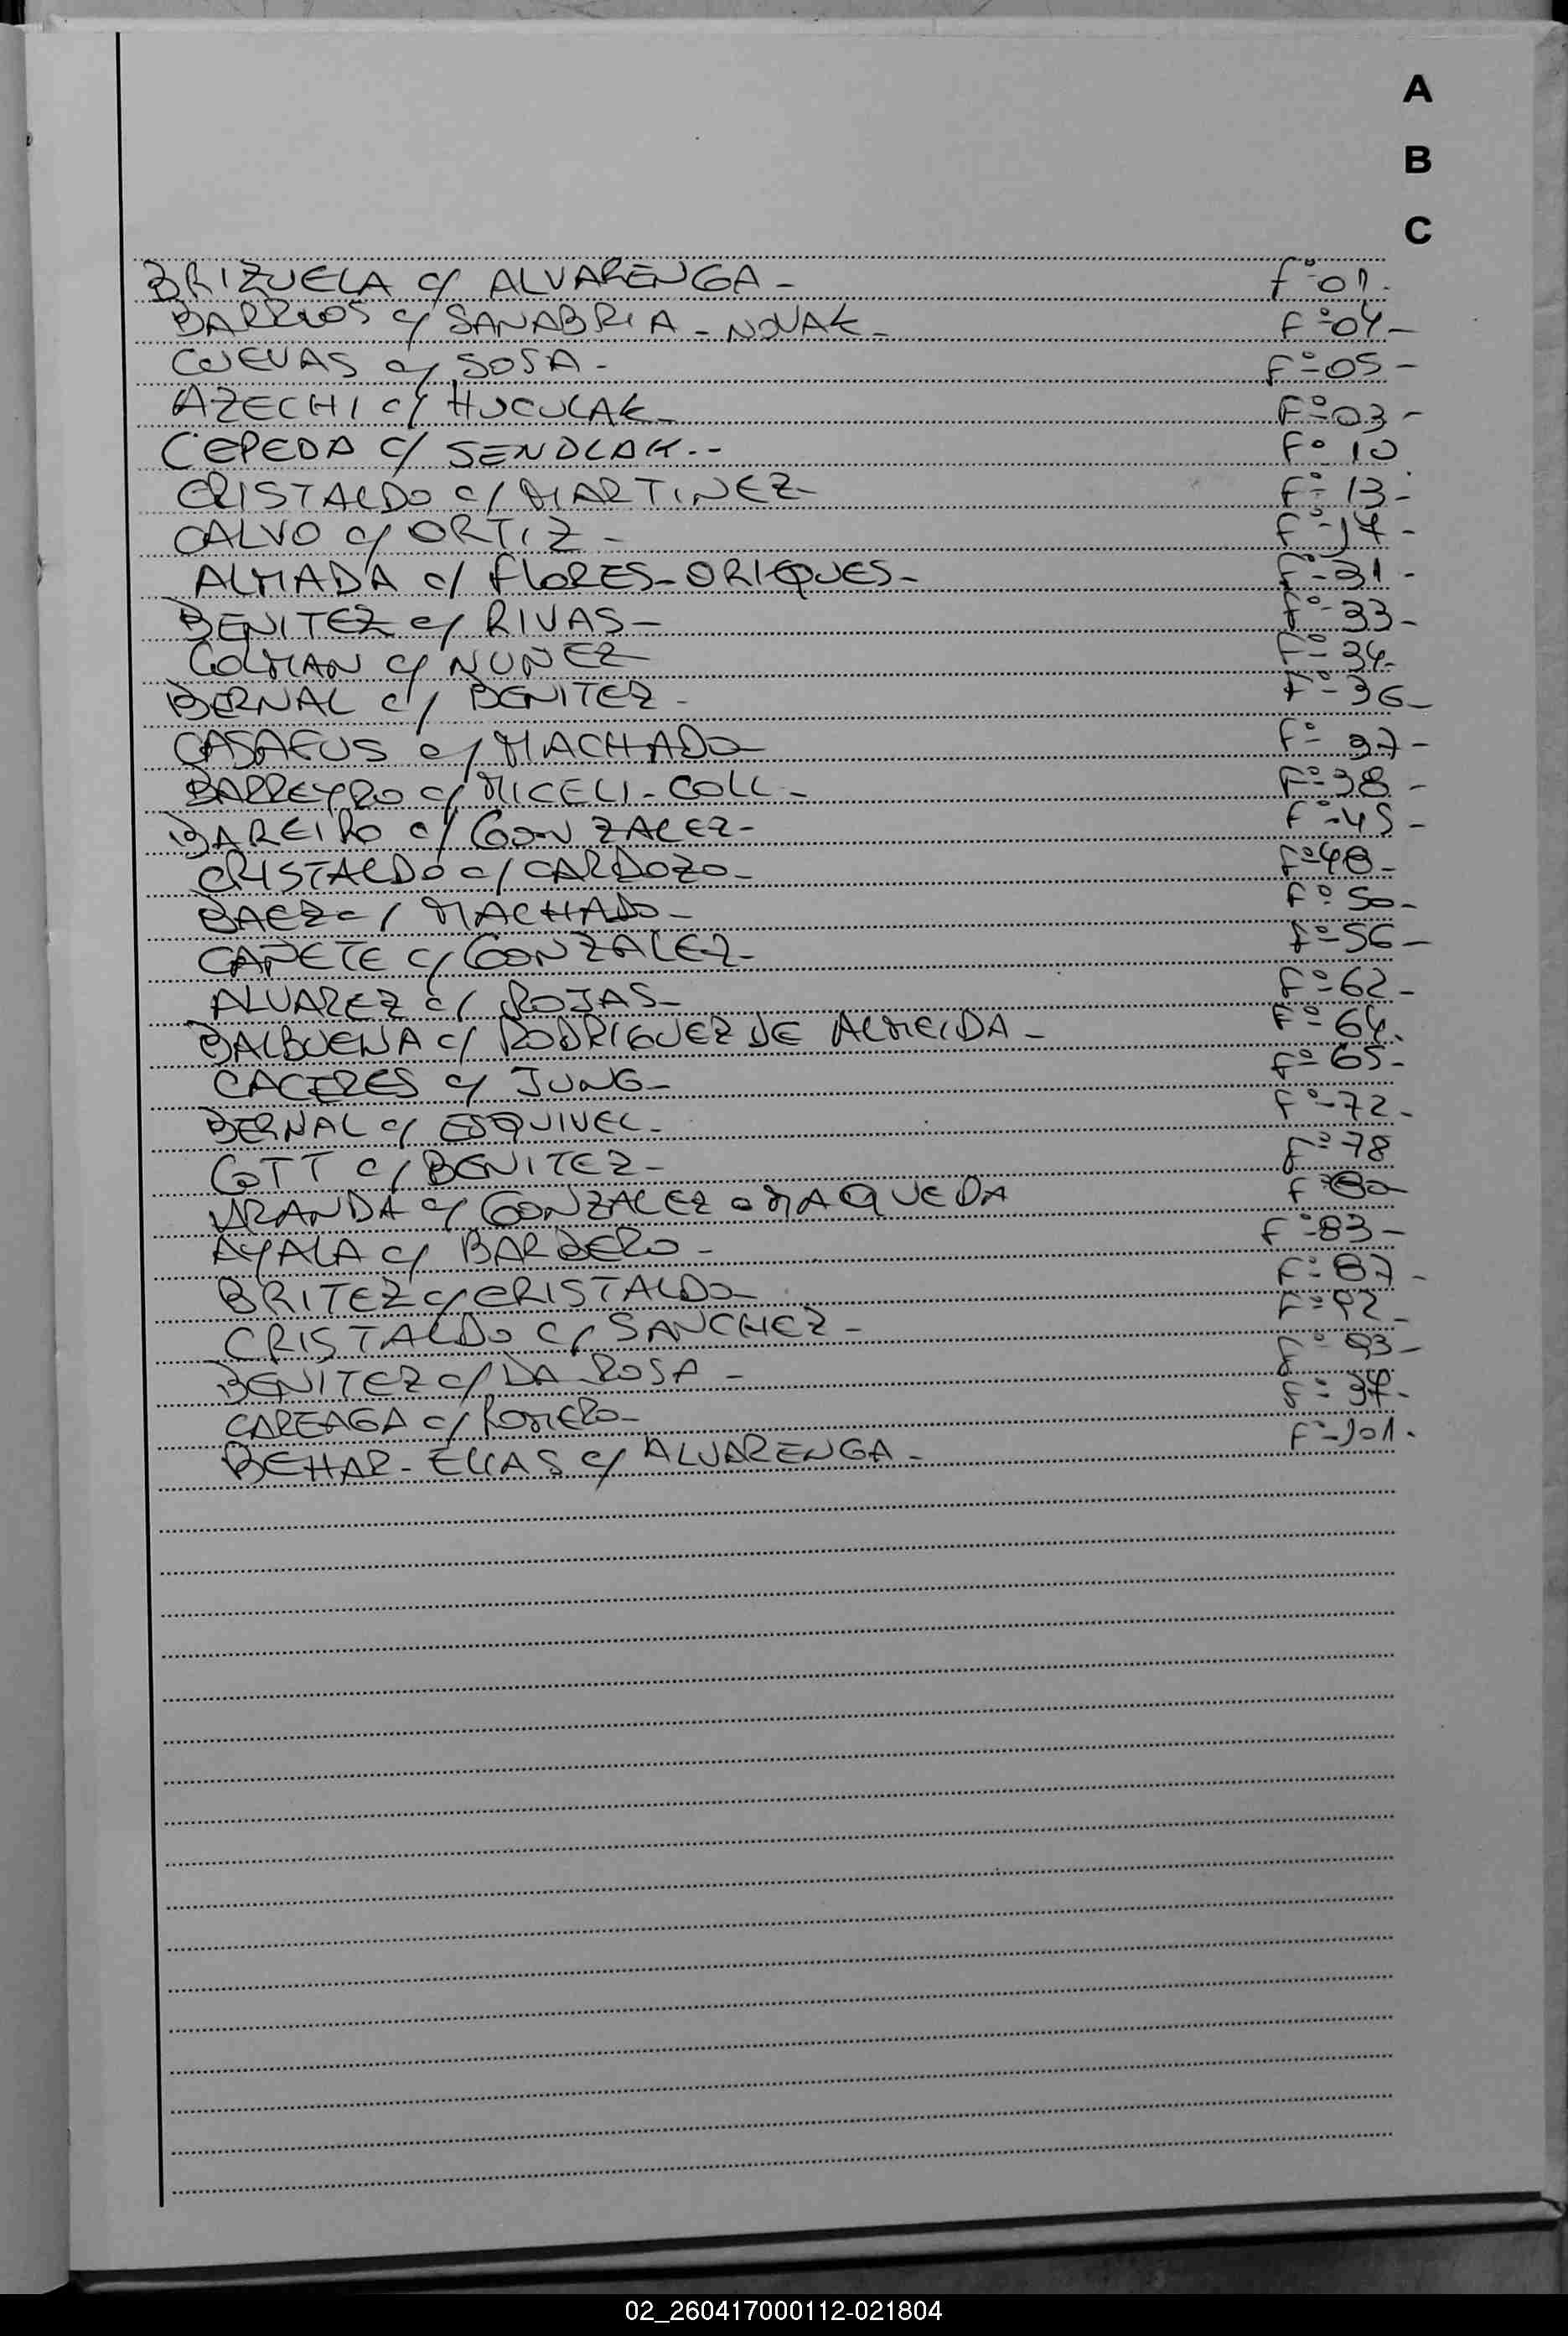 A
B
C
BRIZUELA c/ ALVARENGA - Fº 01.
BARRIOS c/ SANABRIA - NOVAK - Fº 04 -
CUEVAS c/ SOSA - Fº 05 -
AZECHI c/ HUCULAK - Fº 03 -
CEPEDA c/ SENDLAK.- - Fº 10
CRISTALDO c/ MARTINEZ - Fº 13 -
CALVO c/ ORTIZ - Fº 17 -
ALMADA c/ FLORES - ORIEQUES - Fº 31 -
BENITEZ c/ RIVAS - Fº 33 -
COLMAN c/ NUNEZ Fº 34.
BERNAL c/ BENITEZ - Fº 36 -
CASAFUS c/ MACHADO - Fº 37 -
BARREYRO c/ MICELI - COLL - Fº 38 -
BAREIRO c/ GONZALEZ - Fº 45 -
CRISTALDO c/ CARDOZO - Fº 48 -
BAEZ c/ MACHADO - Fº 50 -
CAÑETE c/ GONZALEZ - Fº 56 -
ALVAREZ c/ ROJAS - Fº 62 -
BALBUENA c/ RODRIGUEZ DE ALMEIDA - Fº 64.
CACERES c/ JUNG - Fº 65 -
BERNAL c/ ESQUIVEL - Fº 72 -
COTT c/ BENITEZ - Fº 78
ARANDA c/ GONZALEZ o MAQUEDA Fº 80 -
AYALA c/ BARBERO - Fº 83 -
BRITEZ c/ CRISTALDO - Fº 87 -
CRISTALDO c/ SANCHEZ - Fº 92 -
BENITEZ c/ DA ROSA - Fº 93 -
CAREAGA c/ ROMERO - Fº
BEHAR - ELIAS c/ ALVARENGA - Fº 101.
02_260417000112-021804